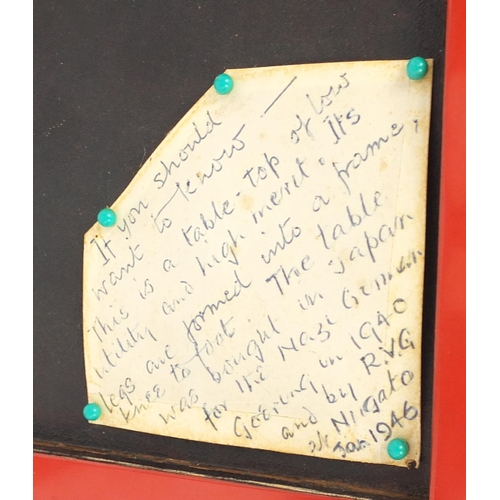 If you should
want to know —
This is a table-top of low
utility and high merit. Its
legs are formed into a frame,
knee to foot. The table
was bought in Japan
for the Nazi German
Goering in 1940
and by R.V.G
Niigato
Jan 1946